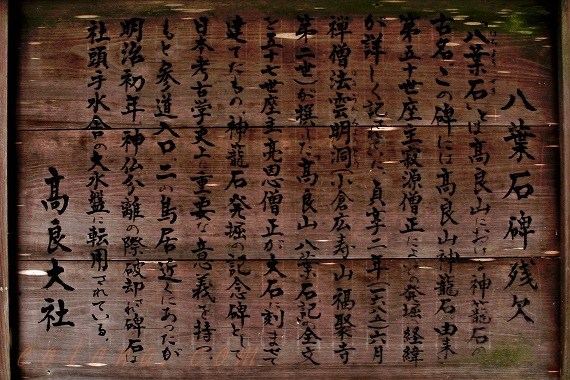 八葉石碑残欠
「八葉石」とは高良山における神籠石の
古名。この碑には高良山神籠石の由来
第五十世座主寂源僧正による発掘の経緯
が詳しく記され、貞享二年(一六八五)六月
禅僧法雲明洞(小倉広寿山福聚寺
第二世)が撰した「高良山八葉石記」の全文
を五十七世座主亮恩僧正が大石に刻ませて
建てたもの。神籠石発掘の記念碑として
日本考古学史上、重要な意義を持つ。
もと参道入口、二の鳥居近くにあったが
明治初年、神仏分離の際破却され碑石は
社頭手水舎の大水盤に転用されている。
高良大社